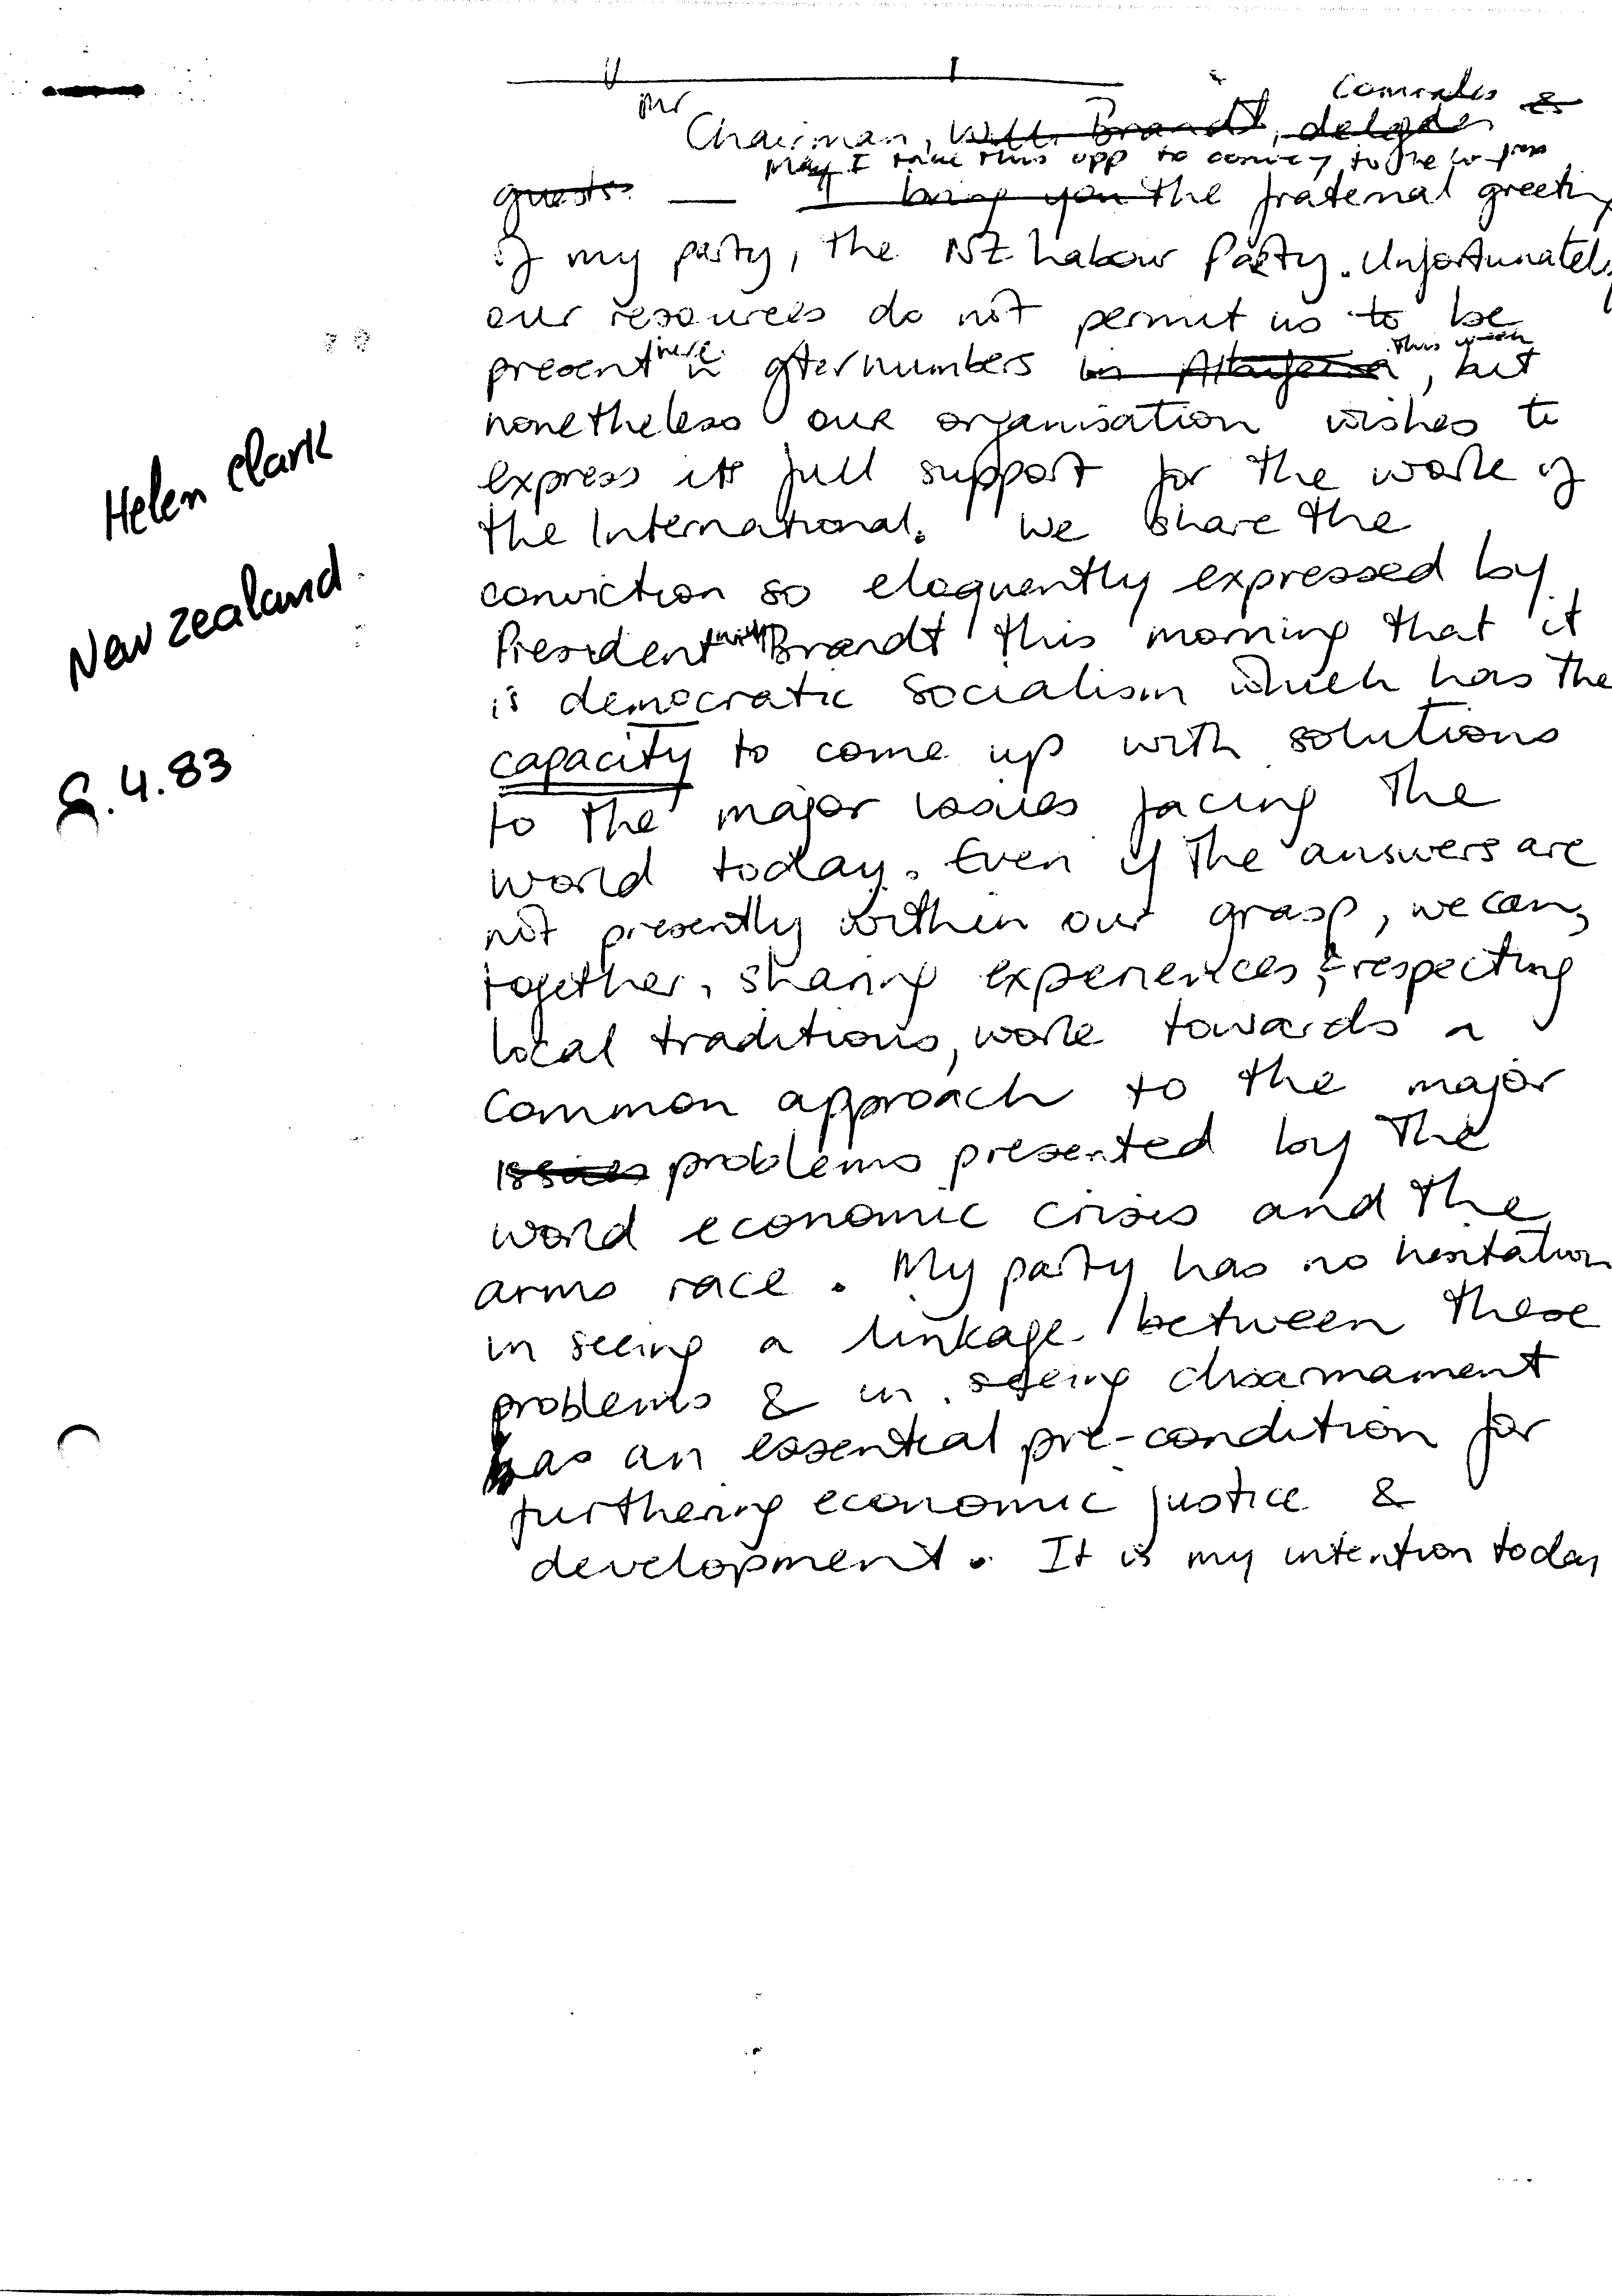 Mr Comrades &
Chairman, Willi Brandt, delegates
May I take this opp to convey to the
guests. — I bring you the fraternal greeting
of my party, the NZ Labour Party. Unfortunately
our resources do not permit us to be
present here in gter numbers in this week, but
nonetheless our organisation wishes to
express its full support for the work of
the International. We share the
conviction so eloquently expressed by
President Willy Brandt this morning that it
is democratic socialism which has the
capacity to come up with solutions
to the major issues facing the
world today. Even if the answers are
not presently within our grasp, we can,
together, sharing experiences & respecting
local traditions, work towards a
common approach to the major
issues problems presented by the
world economic crisis and the
arms race. My party has no hesitation
in seeing a linkage between these
problems & in seeing disarmament
as an essential pre-condition for
furthering economic justice &
development. It is my intention today
Helen Clark
New Zealand
8.4.83